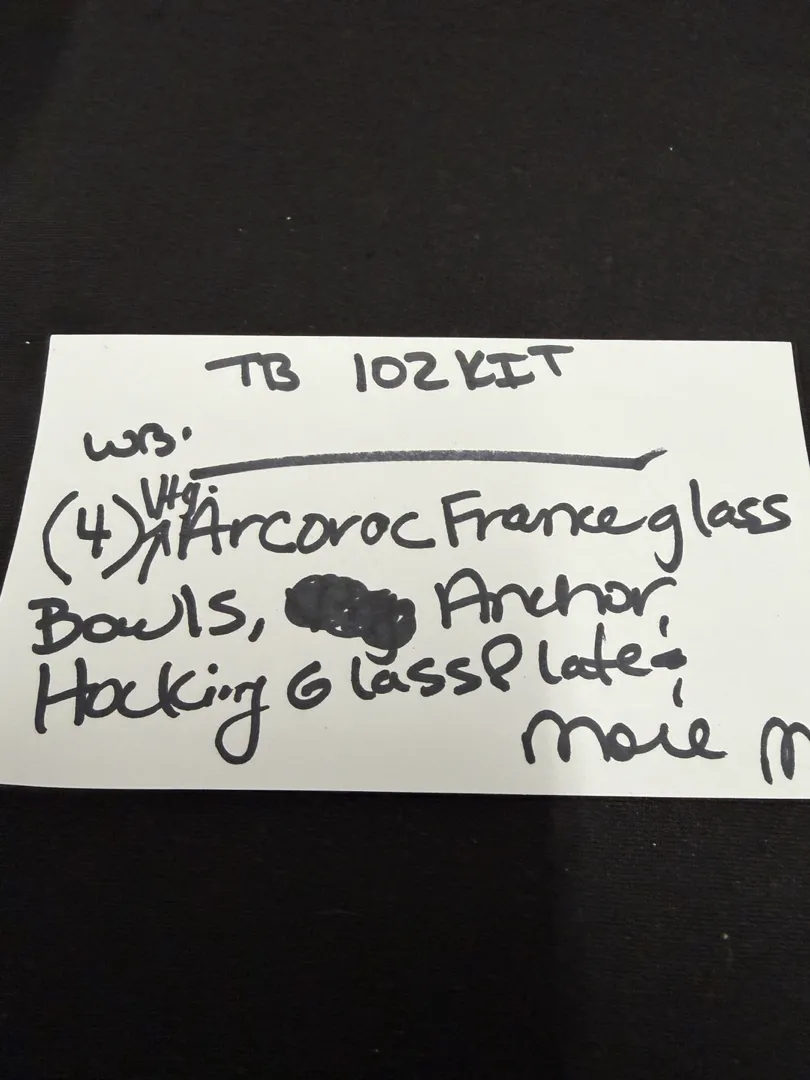 TB 102 KIT
WB.
(4) Vtg. Arcoroc France glass
Bowls, Anchor,
Hocking Glass Plate,
more